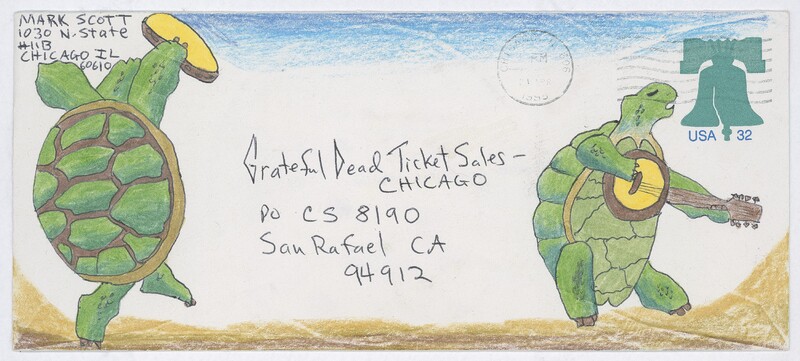 MARK SCOTT
1030 N. State
#11B
CHICAGO IL
60610
Grateful Dead Ticket Sales –
CHICAGO
PO CS 8190
San Rafael CA
94912
USA 32